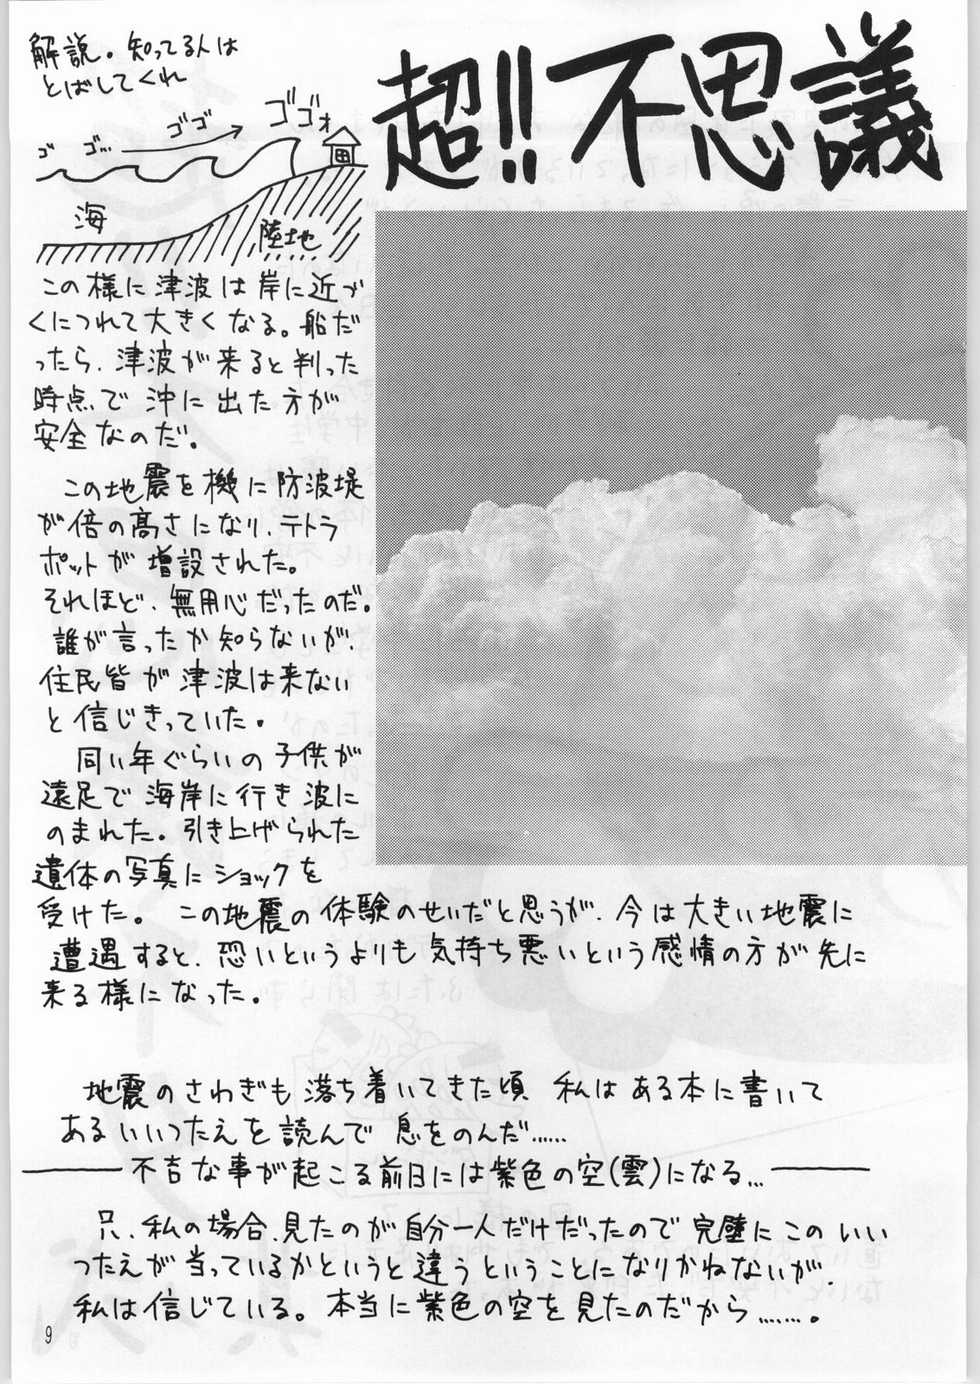 超!!不思議
解説。知ってる人は
とばしてくれ
ゴ ゴ… ゴゴ ゴゴォ
海
陸地
この様に津波は岸に近づ
くにつれて大きくなる。船だ
ったら、津波が来ると判った
時点で沖に出た方が
安全なのだ。
この地震を機に防波堤
が倍の高さになり、テトラ
ポットが増設された。
それほど、無用心だったのだ。
誰が言ったか知らないが、
住民皆が津波は来ない
と信じきっていた。
同い年ぐらいの子供が
遠足で海岸に行き波に
のまれた。引き上げられた
遺体の写真にショックを
受けた。この地震の体験のせいだと思うが、今は大きい地震に
遭遇すると、恐いというよりも気持ち悪いという感情の方が先に
来る様になった。
地震のさわぎも落ち着いてきた頃 私はある本に書いて
あるいいつたえを読んで息をのんだ……
――不吉な事が起こる前日には紫色の空(雲)になる…――
只、私の場合、見たのが自分一人だけだったので完璧にこのいい
つたえが当っているかというと違うということになりかねないが、
私は信じている。本当に紫色の空を見たのだから……。
9